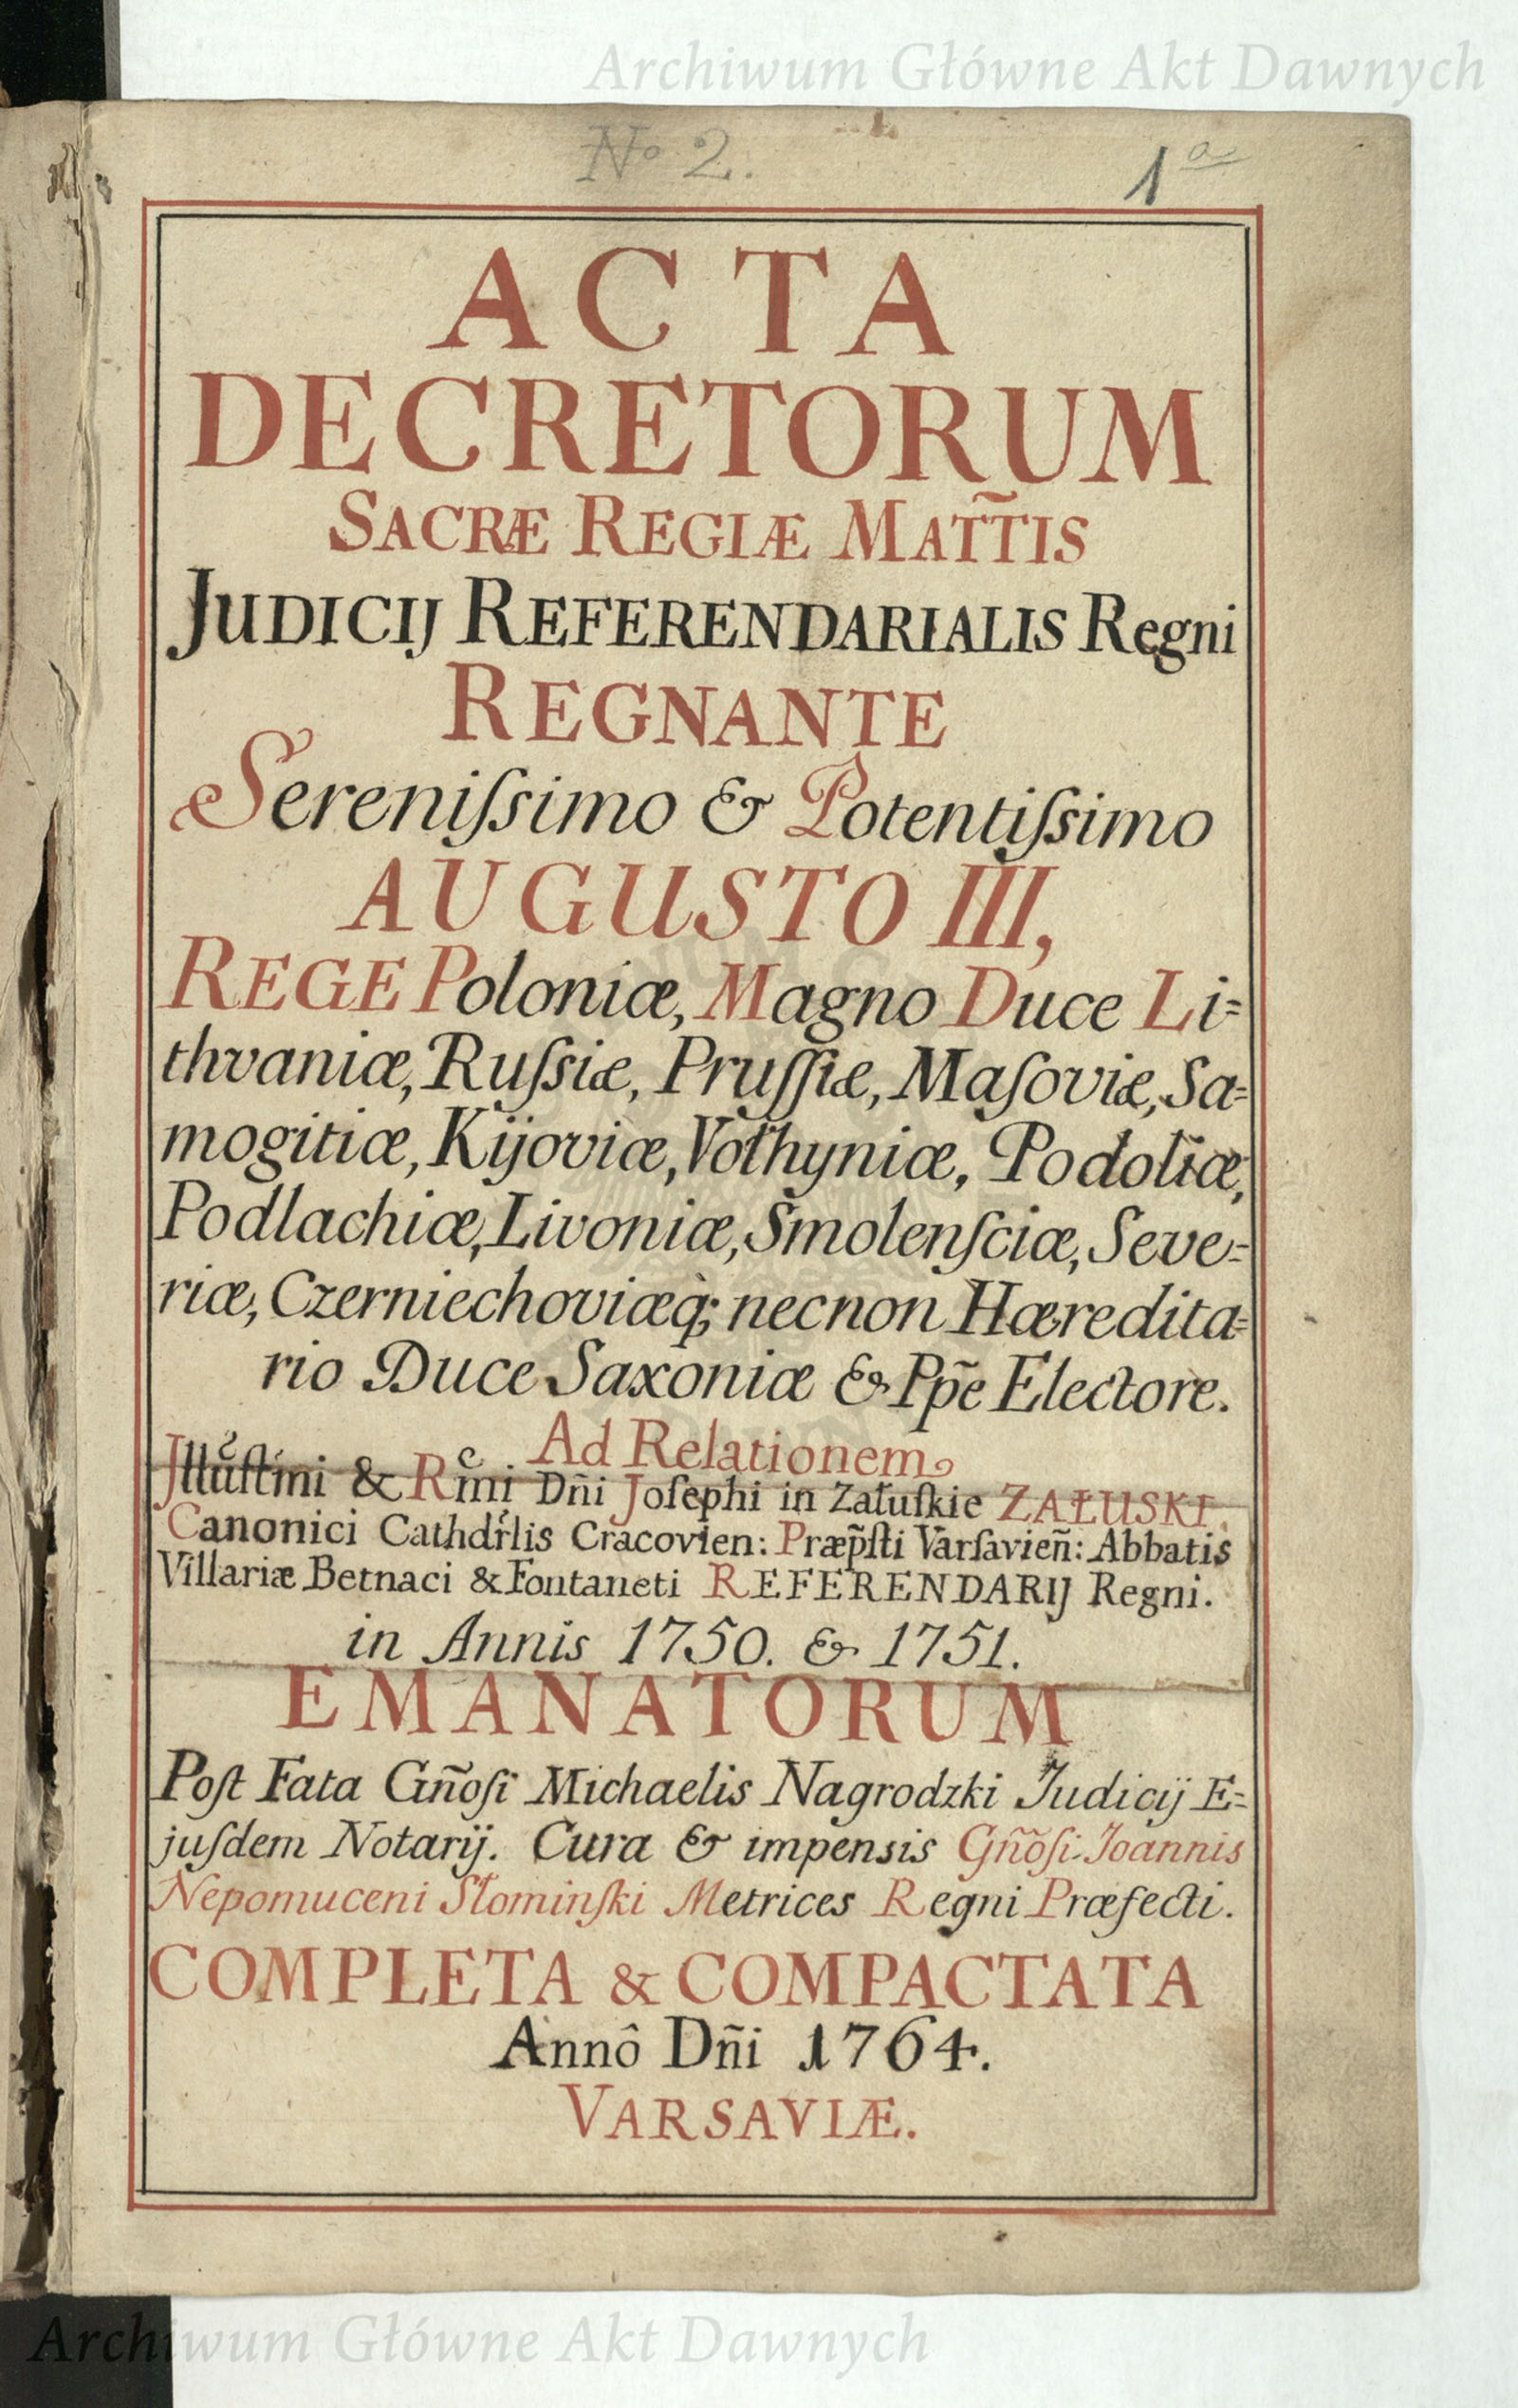 Archiwum Główne Akt Dawnych
No 2.
1a
ACTA
DECRETORUM
SACRÆ REGIÆ MATT̃IS
JUDICIJ REFERENDARIALIS Regni
REGNANTE
Sereniſsimo & Potentiſsimo
AUGUSTO III,
REGE Poloniæ, Magno Duce Li=
thvaniæ, Ruſsiæ, Pruſſiæ, Maſoviæ, Sa=
mogitiæ, Kijoviæ, Vołhyniæ, Podoliæ,
Podlachiæ, Livoniæ, Smolenſciæ, Seve=
riæ, Czerniechoviæq̀; necnon Hæredita=
rio Duce Saxoniæ & Pp̃e Electore.
Ad Relationem
Jllũſtmi & Rmi Dñi Joſephi in Załuſkie ZAŁUSKI
Canonici Cathdrlis Cracovien: Præp̃ſti Varſavieñ: Abbatis
Villariæ Betnaci & Fontaneti REFERENDARIJ Regni.
in Annis 1750. & 1751.
EMANATORUM
Poſt Fata Gñoſi Michaelis Nagrodzki Judicij E=
juſdem Notarij. Cura & impensis Gñõſi Joannis
Nepomuceni Słominſki Metrices Regni Præfecti.
COMPLETA & COMPACTATA
Annô Dñi 1764.
VARSAVIÆ.
Archiwum Główne Akt Dawnych